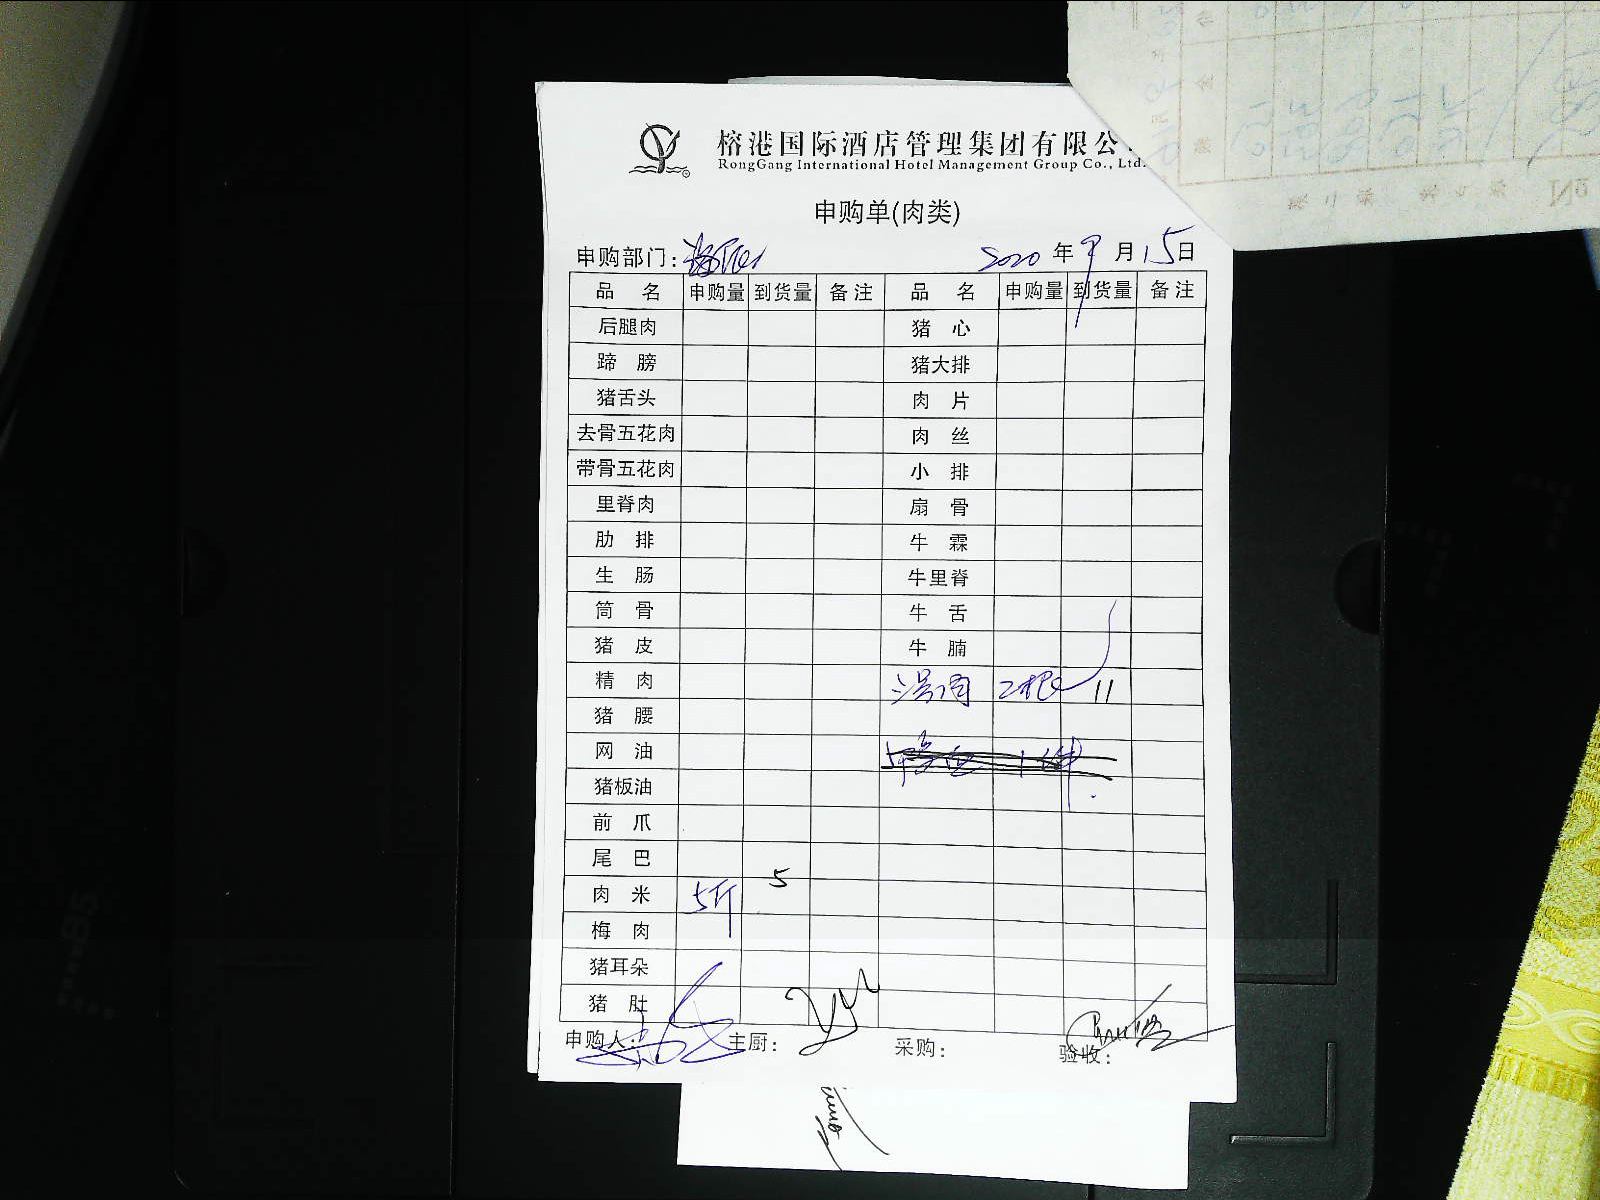 榕港国际酒店管理集团有限公
RongGang International Hotel Management Group Co., Ltd.
申购单(肉类)
申购部门: 2020 年 9 月 15 日
品 名 申购量 到货量 备注 品 名 申购量 到货量 备注
后腿肉 猪 心
蹄 膀 猪大排
猪舌头 肉 片
去骨五花肉 肉 丝
带骨五花肉 小 排
里脊肉 扇 骨
肋 排 牛 霖
生 肠 牛里脊
筒 骨 牛 舌
猪 皮 牛 腩
精 肉 汤骨 2根 11
猪 腰
网 油
猪板油
前 爪
尾 巴
肉 米 5斤 5
梅 肉
猪耳朵
猪 肚
申购人: 主厨: 采购: 验收: